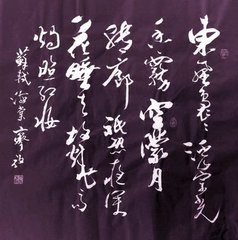 東風裊々泛崇光
香霧空濛月
轉廊祇恐夜深
花睡去故燒高
燭照紅妝
蘇軾海棠